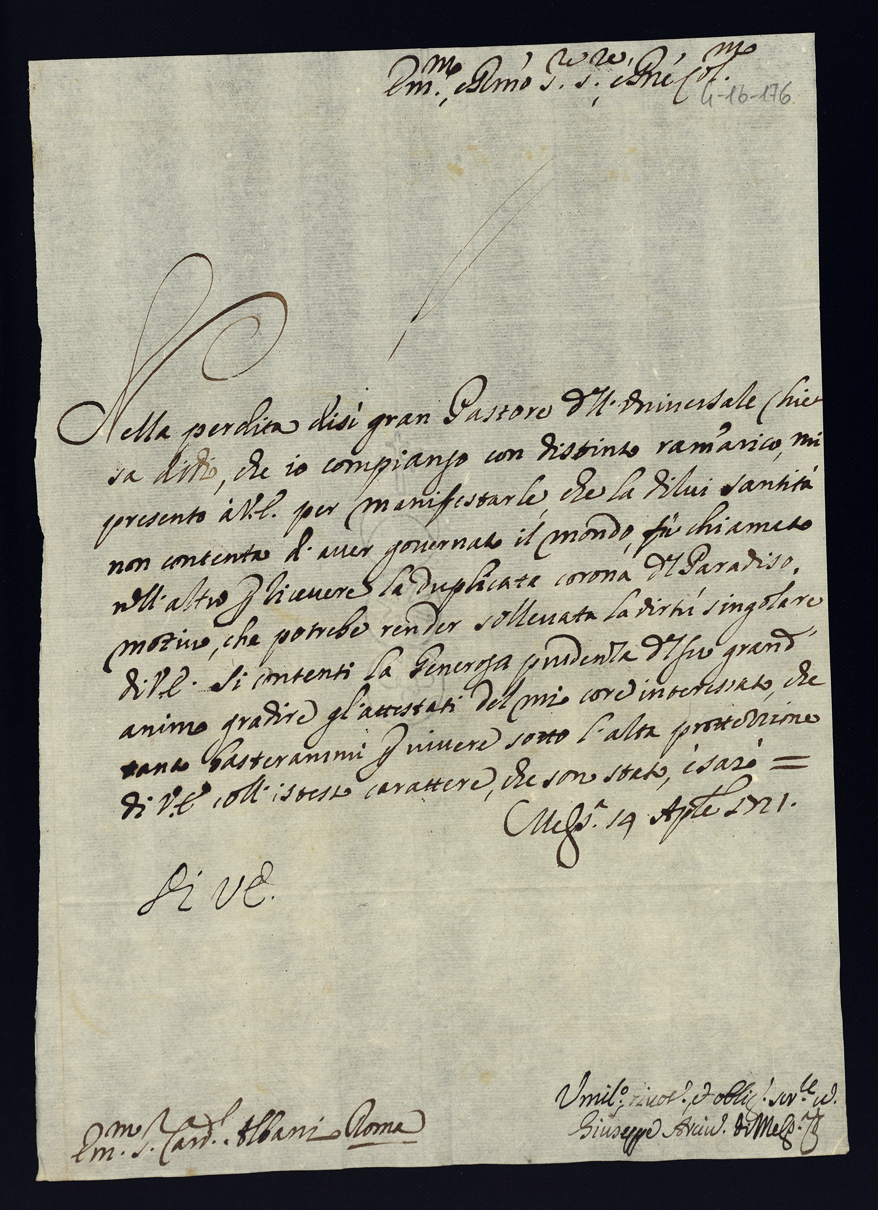 Em.mo, e Rmo S.re S.re, e Prne Col.mo
4-16-176
Nella perdita di sì gran Pastore dell'Universale Chie-
sa di Dio, che io compiango con distinto ramarico, mi
presento à V.E. per manifestarle, che la di lui santità
non contenta d'aver governato il mondo, fù chiamato
nell'altro p ricevere la duplicata corona del Paradiso,
motivo, che potrebe render sollevata la virtù singolare
di V.E. Si contenti la Generosa prudenza del suo grand'
animo gradire gl'attestati del mio core interessato, che
basterammi p vivere sotto l'alta protezzione
di V.E. coll'istesso carattere, che son stato, è sarò =
Mess.a 14 Aple 1721.
Di V E.
Umil.o, divot.o, et oblig.o serv.le
Giuseppe Arciv. di Mess.a
Em.mo S.r Card.l Albani Roma